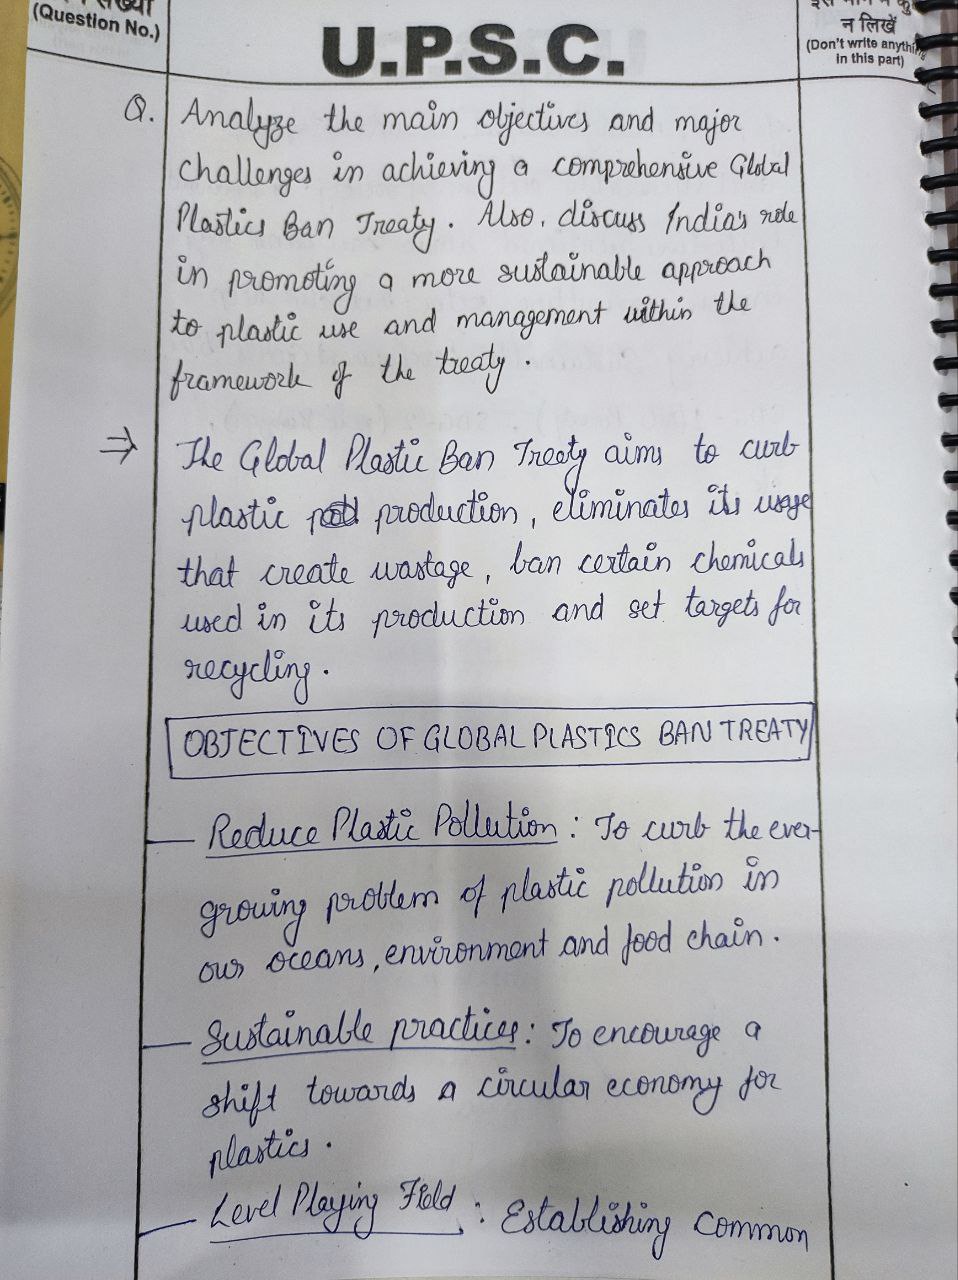 (Question No.)
U.P.S.C.
न लिखें
(Don't write anything
in this part)
Q. Analyze the main objectives and major
challenges in achieving a comprehensive Global
Plastics Ban Treaty. Also, discuss India's role
in promoting a more sustainable approach
to plastic use and management within the
framework of the treaty.
⇒ The Global Plastic Ban Treaty aims to curb
plastic production, eliminates its usage
that create wastage, ban certain chemicals
used in its production and set targets for
recycling.
OBJECTIVES OF GLOBAL PLASTICS BAN TREATY
— Reduce Plastic Pollution : To curb the ever-
growing problem of plastic pollution in
our oceans, environment and food chain.
— Sustainable practices : To encourage a
shift towards a circular economy for
plastics.
— Level Playing Field : Establishing common